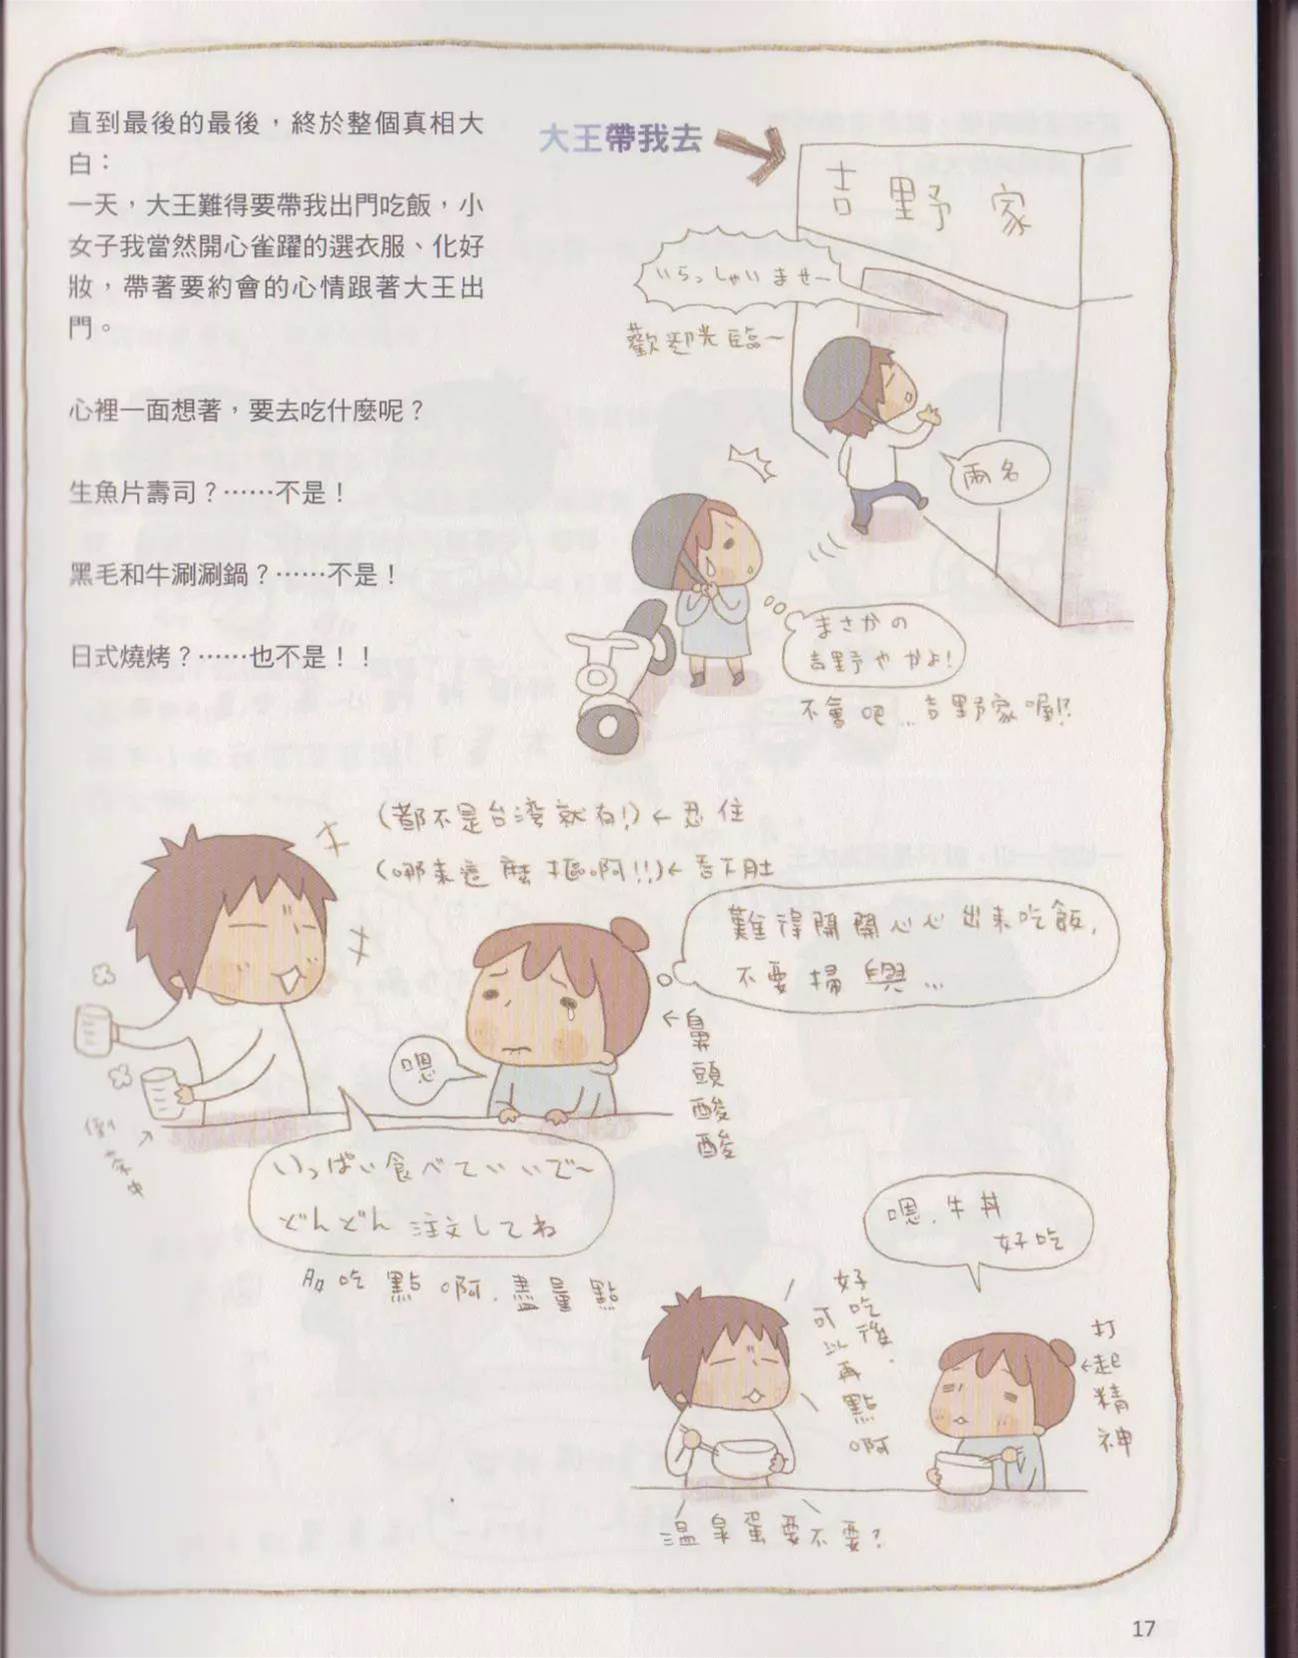 直到最後的最後，終於整個真相大
白：
一天，大王難得要帶我出門吃飯，小
女子我當然開心雀躍的選衣服、化好
妝，帶著要約會的心情跟著大王出
門。
心裡一面想著，要去吃什麼呢？
生魚片壽司？……不是！
黑毛和牛涮涮鍋？……不是！
日式燒烤？……也不是！！
大王帶我去
吉野家
いらっしゃいませ～
歡迎光臨～
兩名
まさかの
吉野やかよ！
不會吧…吉野家喔!?
(都不是台湾就有!)←忍住
(哪來這麼摳啊!!)←吞下肚
難得開開心心出來吃飯,
不要掃興…
←鼻頭酸酸
嗯
倒茶中
いっぱい食べていいで～
どんどん注文してね
加吃點啊.盡量點
嗯.牛丼
好吃
好吃後.
可以再點啊
←打起精神
溫泉蛋要不要?
17